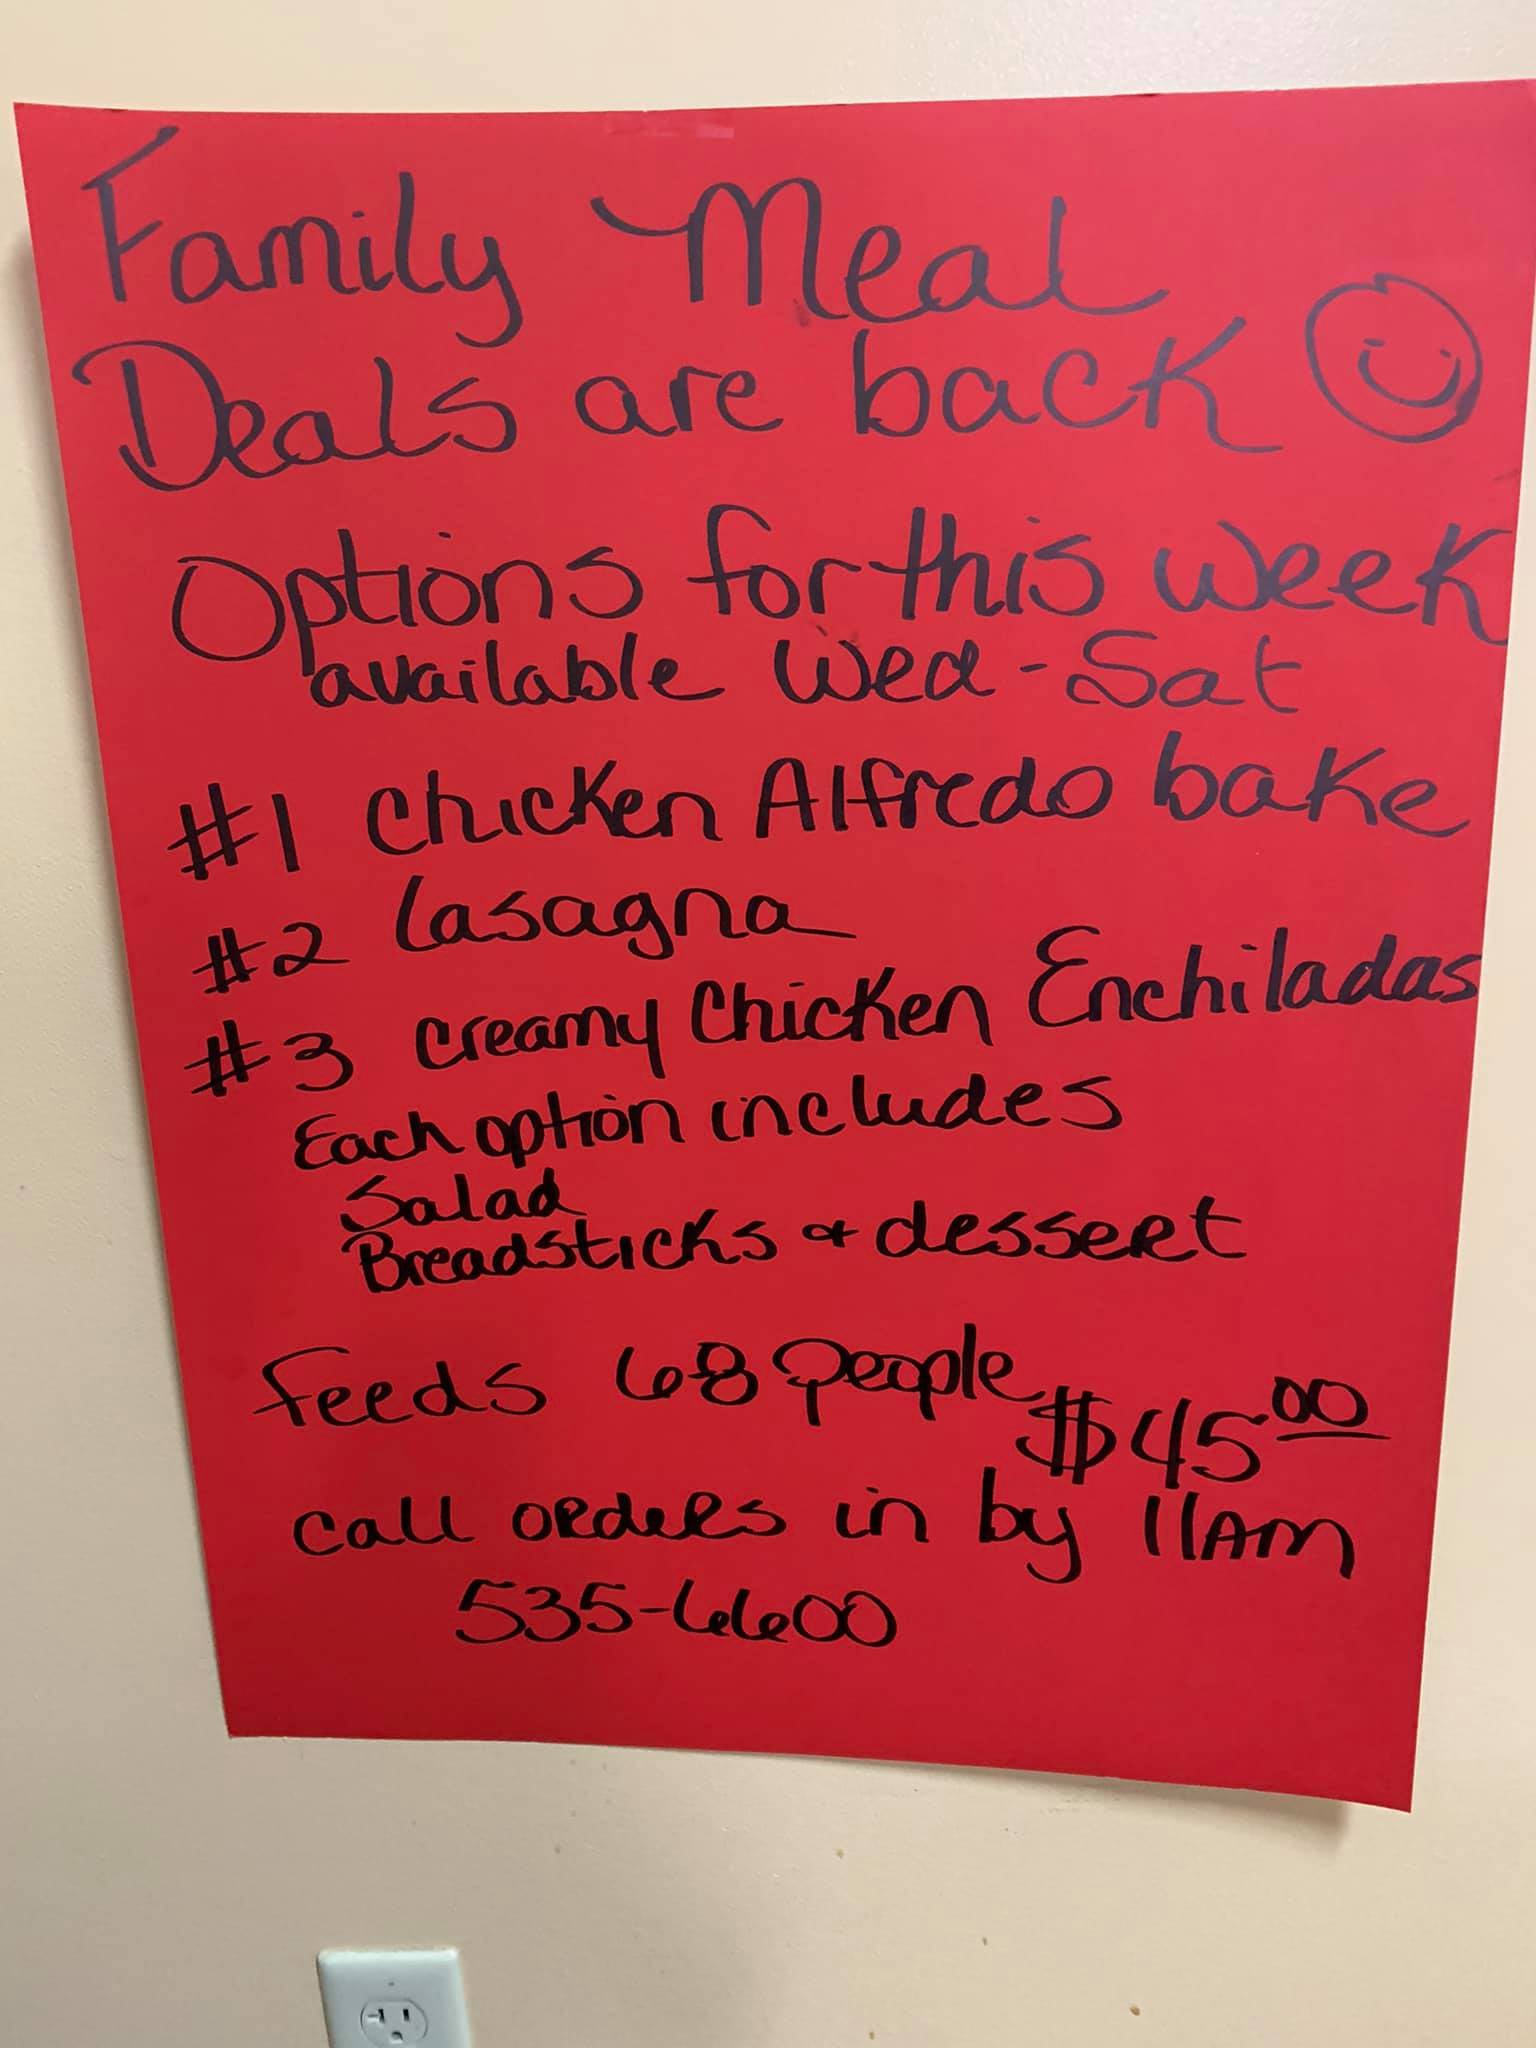 Family Meal
Deals are back
Options for this week
available Wed - Sat
#1 Chicken Alfredo bake
#2 Lasagna
#3 Creamy Chicken Enchiladas
Each option includes
Salad
Breadsticks + dessert
Feeds 6-8 people
$45.00
Call orders in by 11AM
535-6600